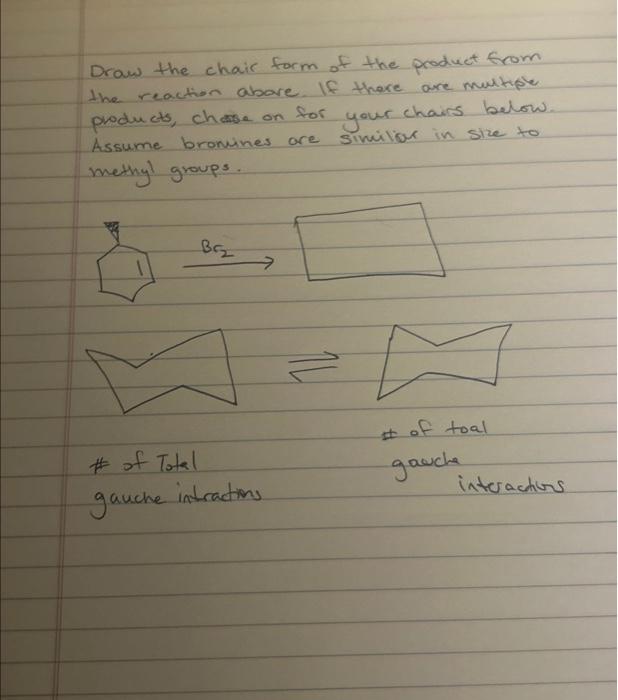 Draw the chair form of the product from
the reaction above. If there are multiple
products, chose on for your chairs below.
Assume bromines are similiar in size to
methyl groups.
Br2
# of Total
gauche intractions
# of toal
gauche
interactions